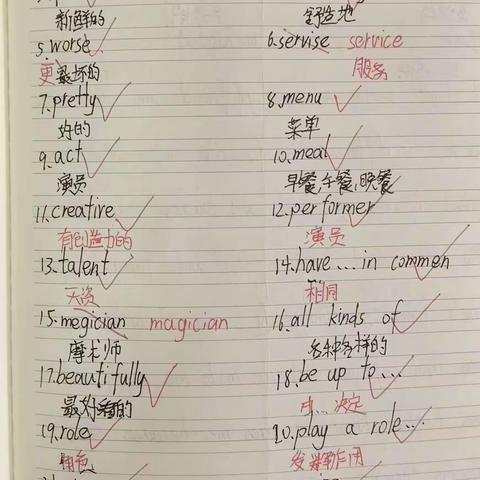 新鲜的 舒适地
5.worse 6.servise service
更 最坏的 服务
7.pretty 8.menu
好的 菜单
9.act 10.meal
演员 早餐,午餐,晚餐
11.creative 12.performer
有创造力的 演员
13.talent 14.have...in commen
天资 相同
15.megician magician 16.all kinds of
魔术师 各种各样的
17.beautifully 18.be up to...
最好看的 由...决定
19.role 20.play a role...
角色 发挥作用